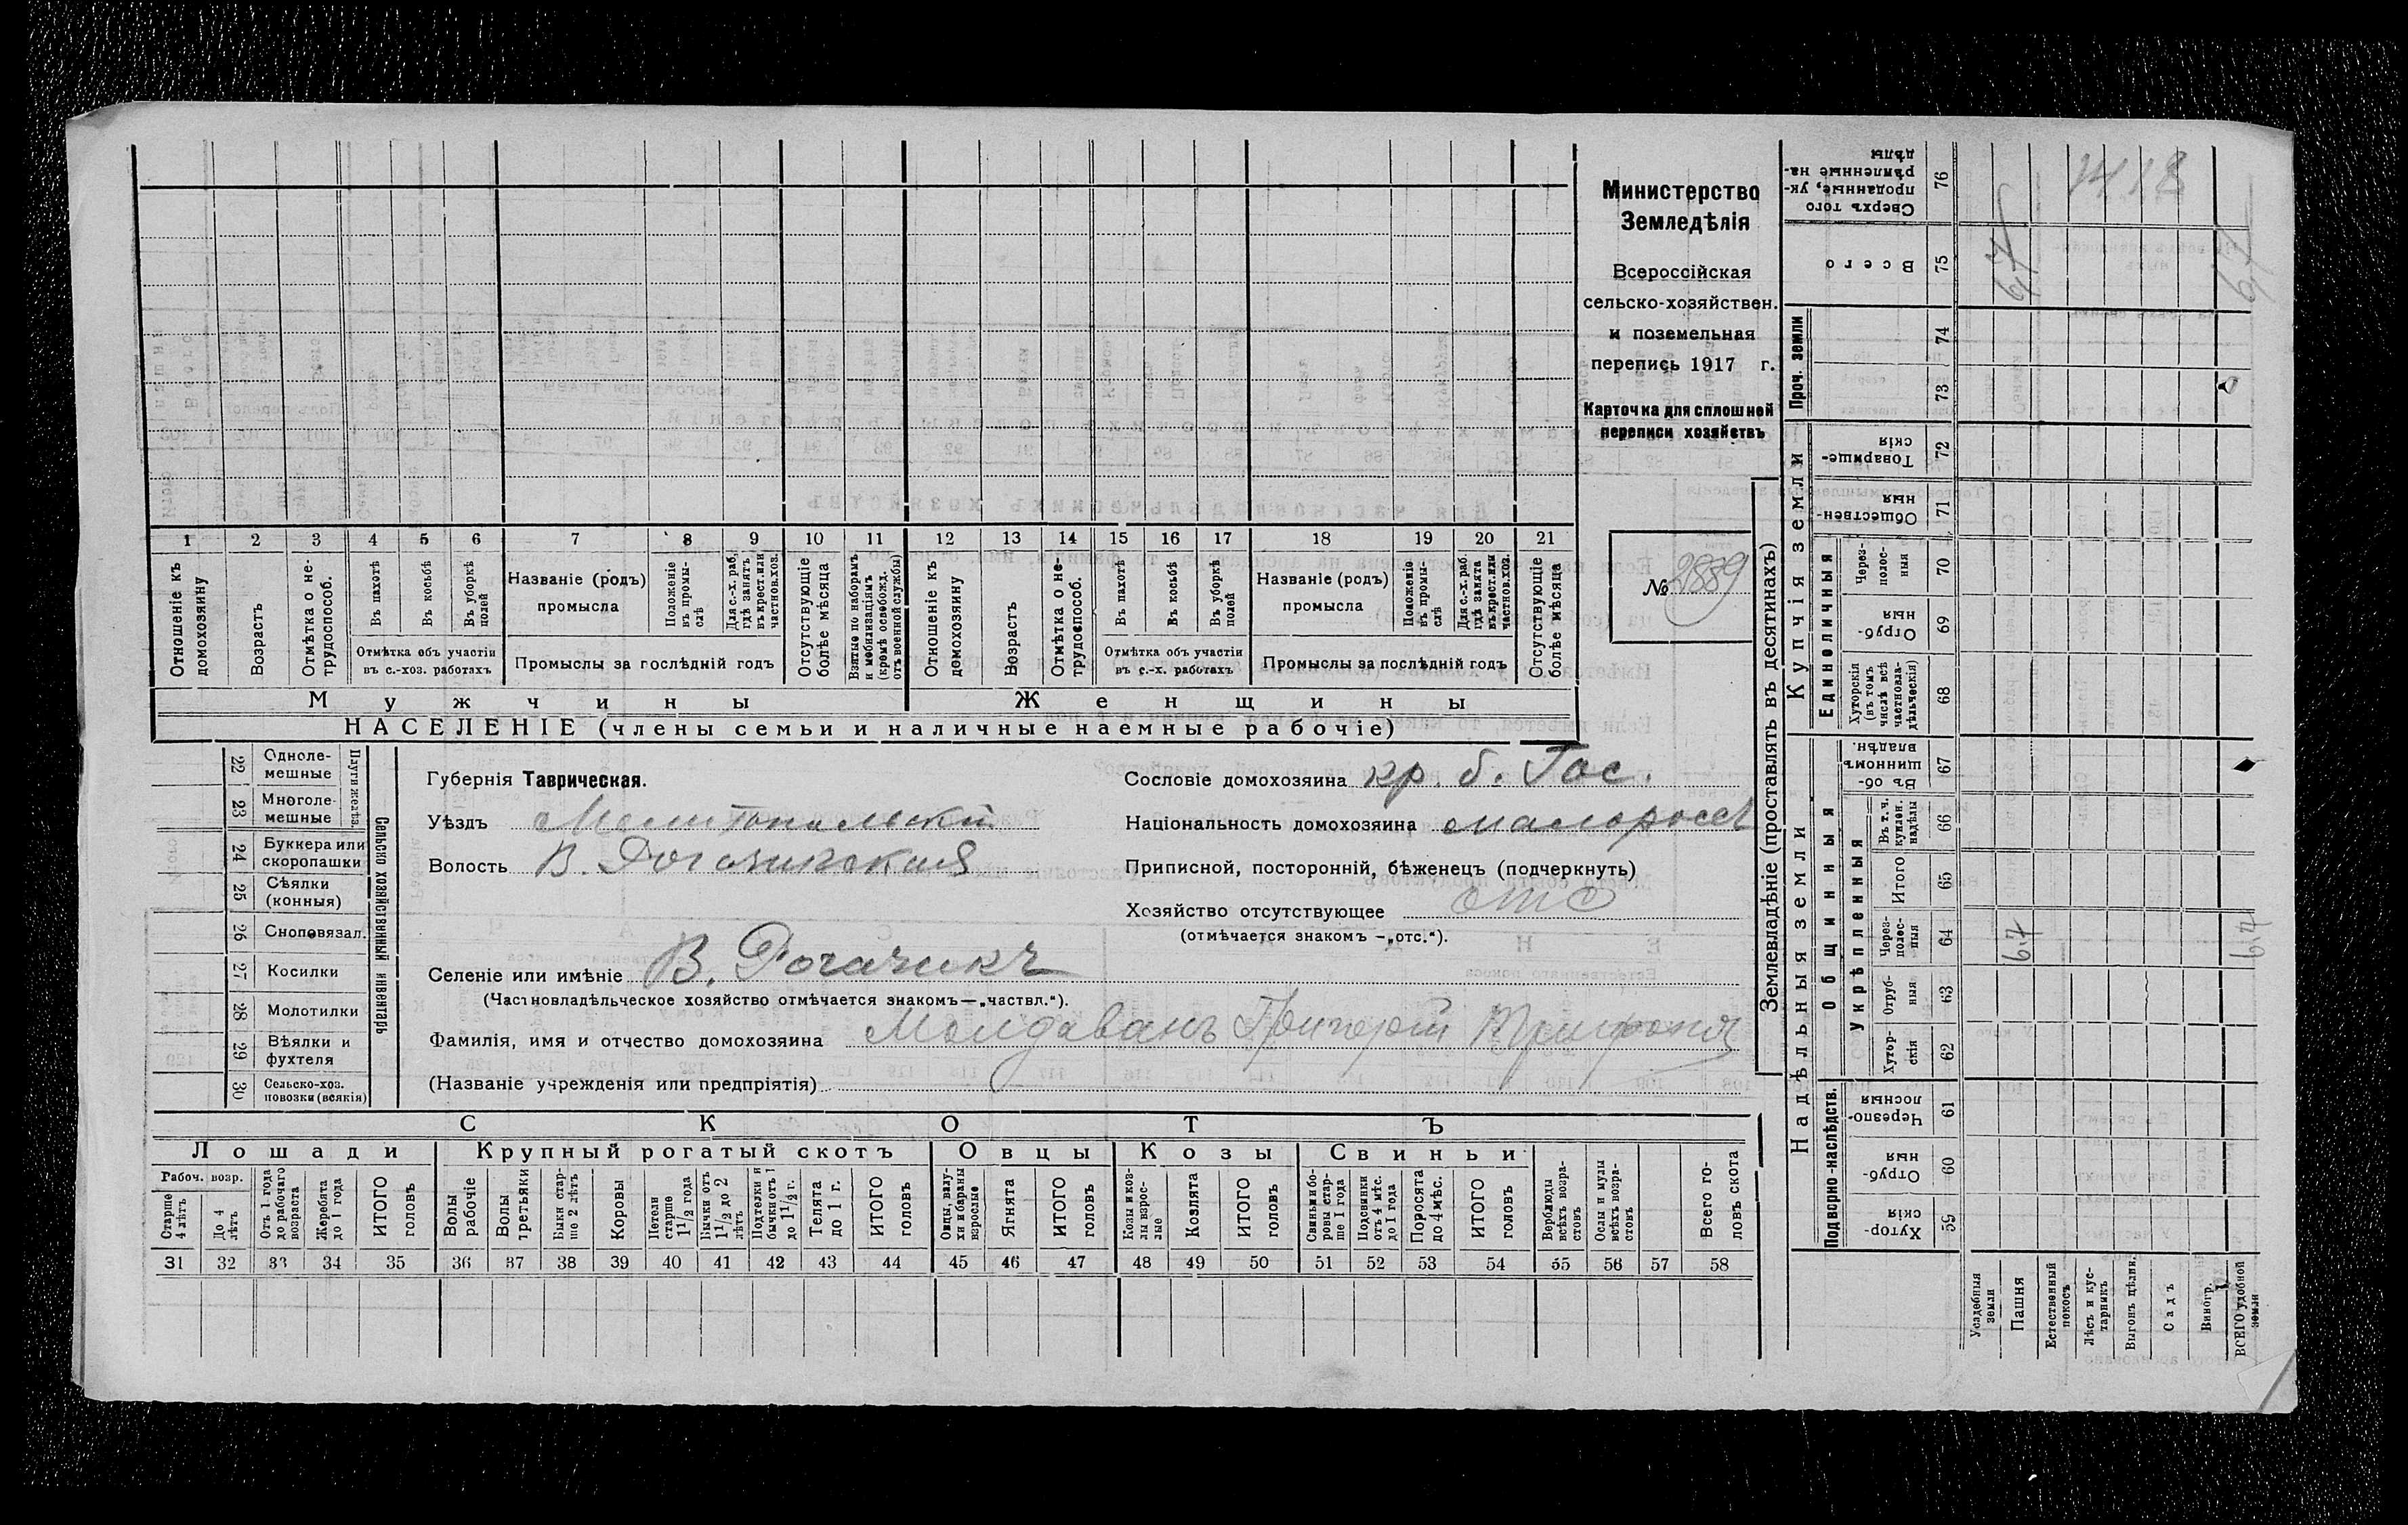 Министерство
Земледѣлія
Всероссійская
сельско-хозяйствен.
и поземельная
перепись 1917 г.
Карточка для сплошной
переписи хозяйствъ
№ 2889
1 2 3 4 5 6 7 8 9 10 11 12 13 14 15 16 17 18 19 20 21
Отношеніе къ домохозяину
Возрастъ
Отмѣтка о не-трудоспособ.
Въ пахотѣ
Въ косьбѣ
Въ уборкѣ полей
Отмѣтка объ участіи
въ с.-хоз. работахъ
Названіе (родъ)
промысла
Положеніе въ промы-слѣ
Для с.-х. раб. гдѣ занятъ въ крест. или частнов. хоз.
Промыслы за послѣдній годъ
Отсутствующіе болѣе мѣсяца
Взятые по наборамъ и мобилизаціямъ (кромѣ освобожд. отъ военной службы)
Отношеніе къ домохозяину
Возрастъ
Отмѣтка о не-трудоспособ.
Въ пахотѣ
Въ косьбѣ
Въ уборкѣ полей
Отмѣтка объ участіи
въ с.-х. работахъ
Названіе (родъ)
промысла
Положеніе въ промы-слѣ
Для с.-х. раб. гдѣ занята въ крест. или частнов. хоз.
Промыслы за послѣдній годъ
Отсутствующіе болѣе мѣсяца
Мужчины
Женщины
НАСЕЛЕНІЕ (члены семьи и наличные наемные рабочіе)
22 Одноле-мешные
23 Многоле-мешные
Плуги желѣз.
24 Буккера или скоропашки
25 Сѣялки (конныя)
26 Сноповязал.
27 Косилки
28 Молотилки
29 Вѣялки и фухтеля
30 Сельско-хоз. повозки (всякія)
Сельско хозяйственный инвентарь
Губернія Таврическая.
Уѣздъ Мелитопольскій
Волость В. Рогачикская
Селеніе или имѣніе В. Рогачикъ
(Частновладѣльческое хозяйство отмѣчается знакомъ—„частвл.“).
Фамилія, имя и отчество домохозяина Молдаванъ Григорій
(Названіе учрежденія или предпріятія)
Сословіе домохозяина кр. б. Гос.
Національность домохозяина малороссъ
Приписной, посторонній, бѣженецъ (подчеркнуть)
Хозяйство отсутствующее отс
(отмѣчается знакомъ —„отс.“).
СКОТЪ
Лошади
Крупный рогатый скотъ
Овцы
Козы
Свиньи
Рабоч. возр.
Старше 4 лѣтъ
До 4 лѣтъ
Отъ 1 года до рабочаго возраста
Жеребята до 1 года
ИТОГО головъ
Волы рабочіе
Волы третьяки
Быки стар-ше 2 лѣтъ
Коровы
Нетели старше 1 1/2 года
Бычки отъ 1 1/2 до 2 лѣтъ
Подтелки и бычки отъ 1 до 1 1/2 г.
Телята до 1 г.
ИТОГО головъ
Овцы, валу-хи и бараны взрослые
Ягнята
ИТОГО головъ
Козы и коз-лы взрос-лые
Козлята
ИТОГО головъ
Свиньи и бо-ровы стар-ше 1 года
Подсвинки отъ 4 мѣс. до 1 года
Поросята до 4 мѣс.
ИТОГО головъ
Верблюды всѣхъ возра-стовъ
Ослы и мулы всѣхъ возра-стовъ
Всего го-ловъ скота
31 32 33 34 35 36 37 38 39 40 41 42 43 44 45 46 47 48 49 50 51 52 53 54 55 56 57 58
Землевладѣніе (проставлять въ десятинахъ)
Надѣльныя земли
Купчія земли
Подворно-наслѣдств.
Общинныя
Укрѣпленныя
Единоличныя
Проч. земли
Хутор-скія 59
Отруб-ныя 60
Черезпо-лосныя 61
Хутор-скія 62
Отруб-ныя 63
Через-полос-ныя 64
Итого 65
Въ т. ч. куплен. надѣлы 66
Въ об-щинномъ владѣн. 67
Хуторскія (въ томъ числѣ всѣ частновла-дѣльческія) 68
Отруб-ныя 69
Через-полос-ныя 70
Обществен-ныя 71
Товарище-скія 72
73
74
Всего 75
Сверхъ того проданные, ук-рѣпленные на-дѣлы 76
Усадебныя земли
Пашня
Естественный покосъ
Лѣсъ и кус-тарникъ
Выгонъ цѣлин.
Садъ
Виногр.
ВСЕГО удобной земли
6,7
6,7
67
67